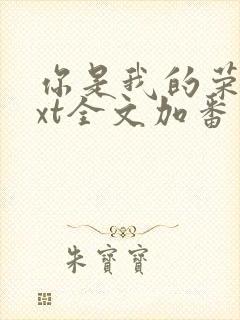 你是我的荣
xt全文加番
朱寶寶